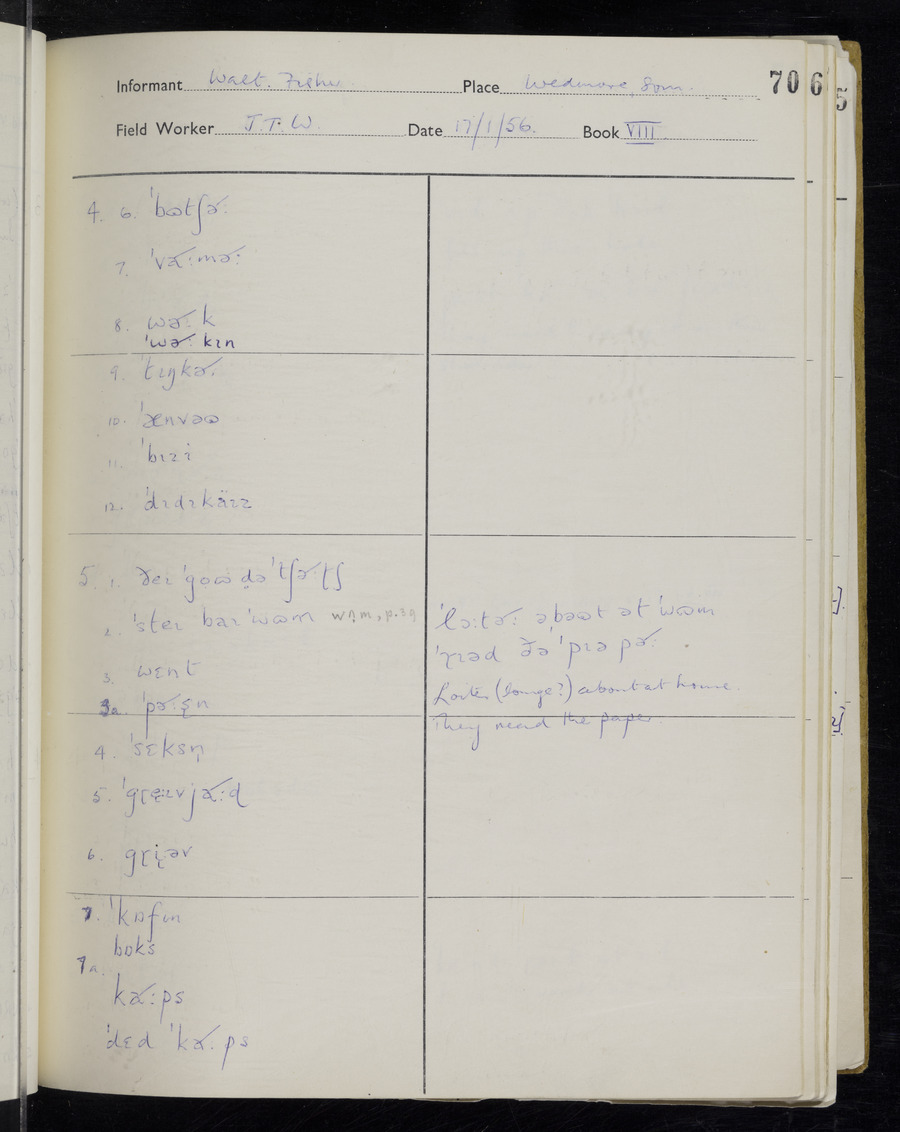 Informant Walt. Fisher Place Wedmore, Som. 70 6
Field Worker J.T.W. Date 17/1/56. Book VIII
4. 6. ˈbɷtʃɚ:
7. ˈvɑ˞:mɚ:
8. wɚ: k
ˈwɚ: kɪn
9. ˈtɪŋkɚ:
10. ˈænvəɷ
11. ˈbɪzi
12. ˈdɪdɪkäɪz
5. 1. ðeɪ ˈgoɷ də ˈtʃɚ:tʃ
2. ˈsteɪ baɪ ˈwɷm
3. wɛnt
3a.
4. ˈsɛksn̩
5.
6.
7. ˈkɒfɪn
bɒks
7a.
kɑ˞:ps
ˈdɛd ˈkɑ˞: ps
əbəɷt ət ˈwɷm
ˈɽɪəd ðə ˈpɪəpɚ:
Loiter (lounge?) about at home.
They read the paper.